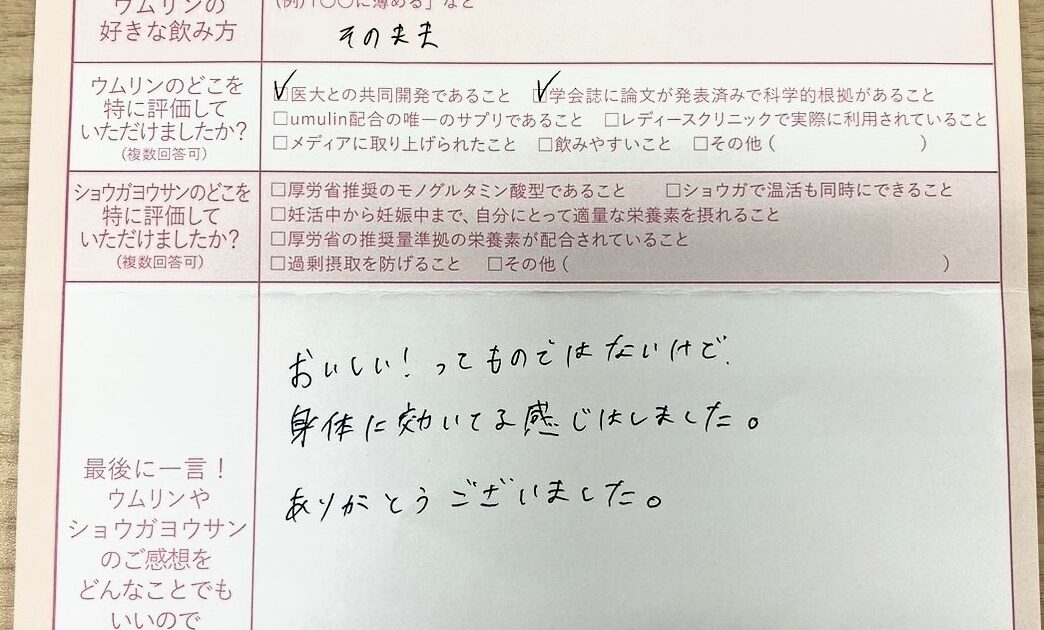 ウムリンの
好きな飲み方
(例)「〇〇に薄める」など
そのまま
ウムリンのどこを
特に評価して
いただけましたか?
(複数回答可)
☑医大との共同開発であること ☑学会誌に論文が発表済みで科学的根拠があること
□umulin配合の唯一のサプリであること □レディースクリニックで実際に利用されていること
□メディアに取り上げられたこと □飲みやすいこと □その他( )
ショウガヨウサンのどこを
特に評価して
いただけましたか?
(複数回答可)
□厚労省推奨のモノグルタミン酸型であること □ショウガで温活も同時にできること
□妊活中から妊娠中まで、自分にとって適量な栄養素を摂れること
□厚労省の推奨量準拠の栄養素が配合されていること
□過剰摂取を防げること □その他( )
最後に一言!
ウムリンや
ショウガヨウサン
のご感想を
どんなことでも
いいので
おいしい!ってものではないけど、
身体に効いてる感じはしました。
ありがとうございました。